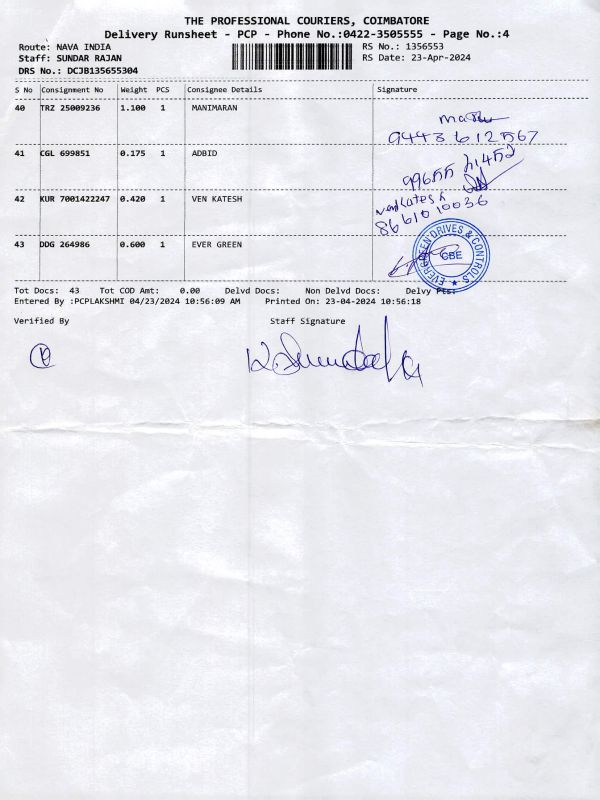 THE PROFESSIONAL COURIERS, COIMBATORE
Delivery Runsheet - PCP - Phone No.:0422-3505555 - Page No.:4
Route: NAVA INDIA
RS No.: 1356553
Staff: SUNDAR RAJAN
RS Date: 23-Apr-2024
DRS No.: DCJB135655304
S No Consignment No Weight PCS Consignee Details Signature
40 TRZ 25009236 1.100 1 MANIMARAN
9443612567
41 CGL 699851 0.175 1 ADBID
99655 21452
42 KUR 7001422247 0.420 1 VEN KATESH
venkatesh
8661010036
43 DDG 264986 0.600 1 EVER GREEN
EVERGREEN DRIVES & CONTROLS
CBE
Tot Docs: 43 Tot COD Amt: 0.00 Delvd Docs: Non Delvd Docs: Delvy Pts:
Entered By :PCPLAKSHMI 04/23/2024 10:56:09 AM Printed On: 23-04-2024 10:56:18
Verified By Staff Signature